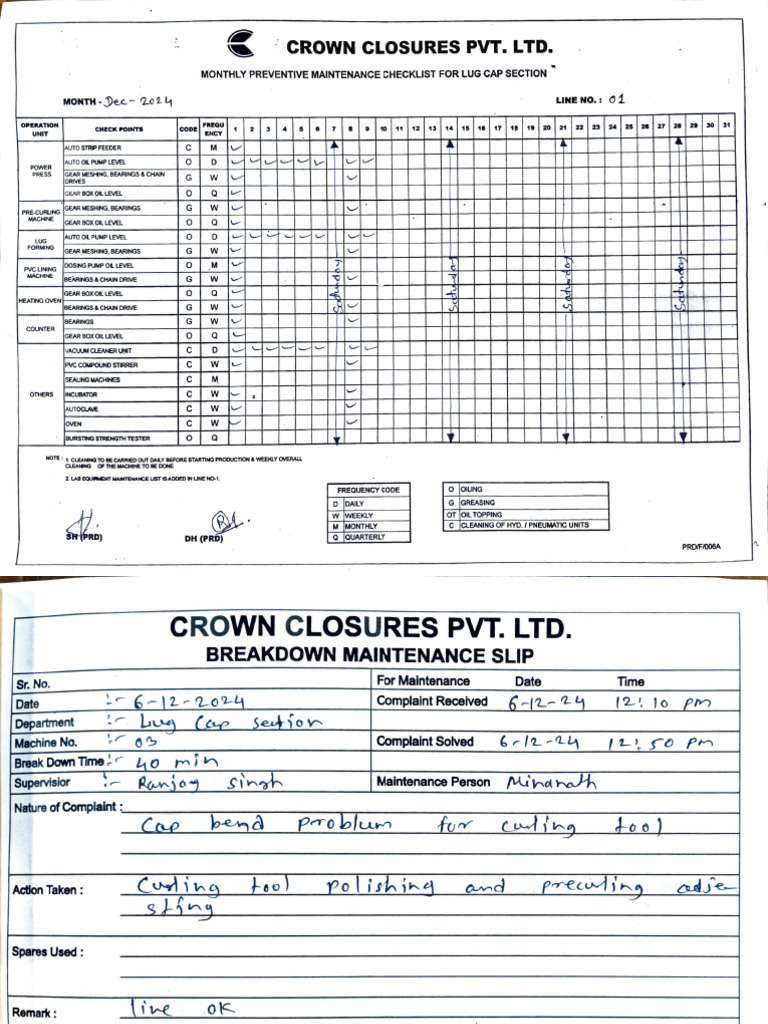 CROWN CLOSURES PVT. LTD.
MONTHLY PREVENTIVE MAINTENANCE CHECKLIST FOR LUG CAP SECTION
MONTH - Dec - 2024 LINE NO. : 01
OPERATION UNIT CHECK POINTS CODE FREQUENCY 1 2 3 4 5 6 7 8 9 10 11 12 13 14 15 16 17 18 19 20 21 22 23 24 25 26 27 28 29 30 31
POWER PRESS
AUTO STRIP FEEDER C M ✓
AUTO OIL PUMP LEVEL O D ✓ ✓ ✓ ✓ ✓ ✓ ✓ ✓
GEAR MESHING, BEARINGS & CHAIN DRIVES G W ✓ ✓
GEAR BOX OIL LEVEL O Q ✓
PRE-CURLING MACHINE
GEAR MESHING, BEARINGS G W ✓ ✓
GEAR BOX OIL LEVEL O Q ✓
LUG FORMING
AUTO OIL PUMP LEVEL O D ✓ ✓ ✓ ✓ ✓ ✓ ✓ ✓
GEAR MESHING, BEARINGS G W ✓ ✓
PVC LINING MACHINE
DOSING PUMP OIL LEVEL O M ✓
BEARINGS & CHAIN DRIVE G W ✓ ✓
HEATING OVEN
GEAR BOX OIL LEVEL O Q ✓
BEARINGS & CHAIN DRIVE G W ✓ ✓
COUNTER
BEARINGS G W ✓ ✓
GEAR BOX OIL LEVEL O Q ✓
OTHERS
VACUUM CLEANER UNIT C D ✓ ✓ ✓ ✓ ✓ ✓ ✓ ✓
PVC COMPOUND STIRRER C W ✓ ✓
SEALING MACHINES C M
INCUBATOR C W ✓ ✓
AUTOCLAVE C W ✓ ✓
OVEN C W ✓ ✓
BURSTING STRENGTH TESTER O Q
Saturday Saturday Saturday Saturday
NOTE : 1. CLEANING TO BE CARRIED OUT DAILY BEFORE STARTING PRODUCTION & WEEKLY OVERALL
CLEANING OF THE MACHINE TO BE DONE
2. LAB EQUIPMENT MAINTENANCE LIST IS ADDED IN LINE NO-1.
FREQUENCY CODE
D DAILY
W WEEKLY
M MONTHLY
Q QUARTERLY
O OILING
G GREASING
OT OIL TOPPING
C CLEANING OF HYD. / PNEUMATIC UNITS
SH (PRD) DH (PRD)
PRD/F/006A
CROWN CLOSURES PVT. LTD.
BREAKDOWN MAINTENANCE SLIP
Sr. No. For Maintenance Date Time
Date :- 6-12-2024 Complaint Received 6-12-24 12:10 pm
Department :- Lug Cap section
Machine No. :- 03 Complaint Solved 6-12-24 12:50 pm
Break Down Time :- 40 min
Supervisior :- Ranjay singh Maintenance Person Minanath
Nature of Complaint :
Cap bend problum for curling tool
Action Taken : Curling tool polishing and precurling adje
sting
Spares Used :
Remark : line ok